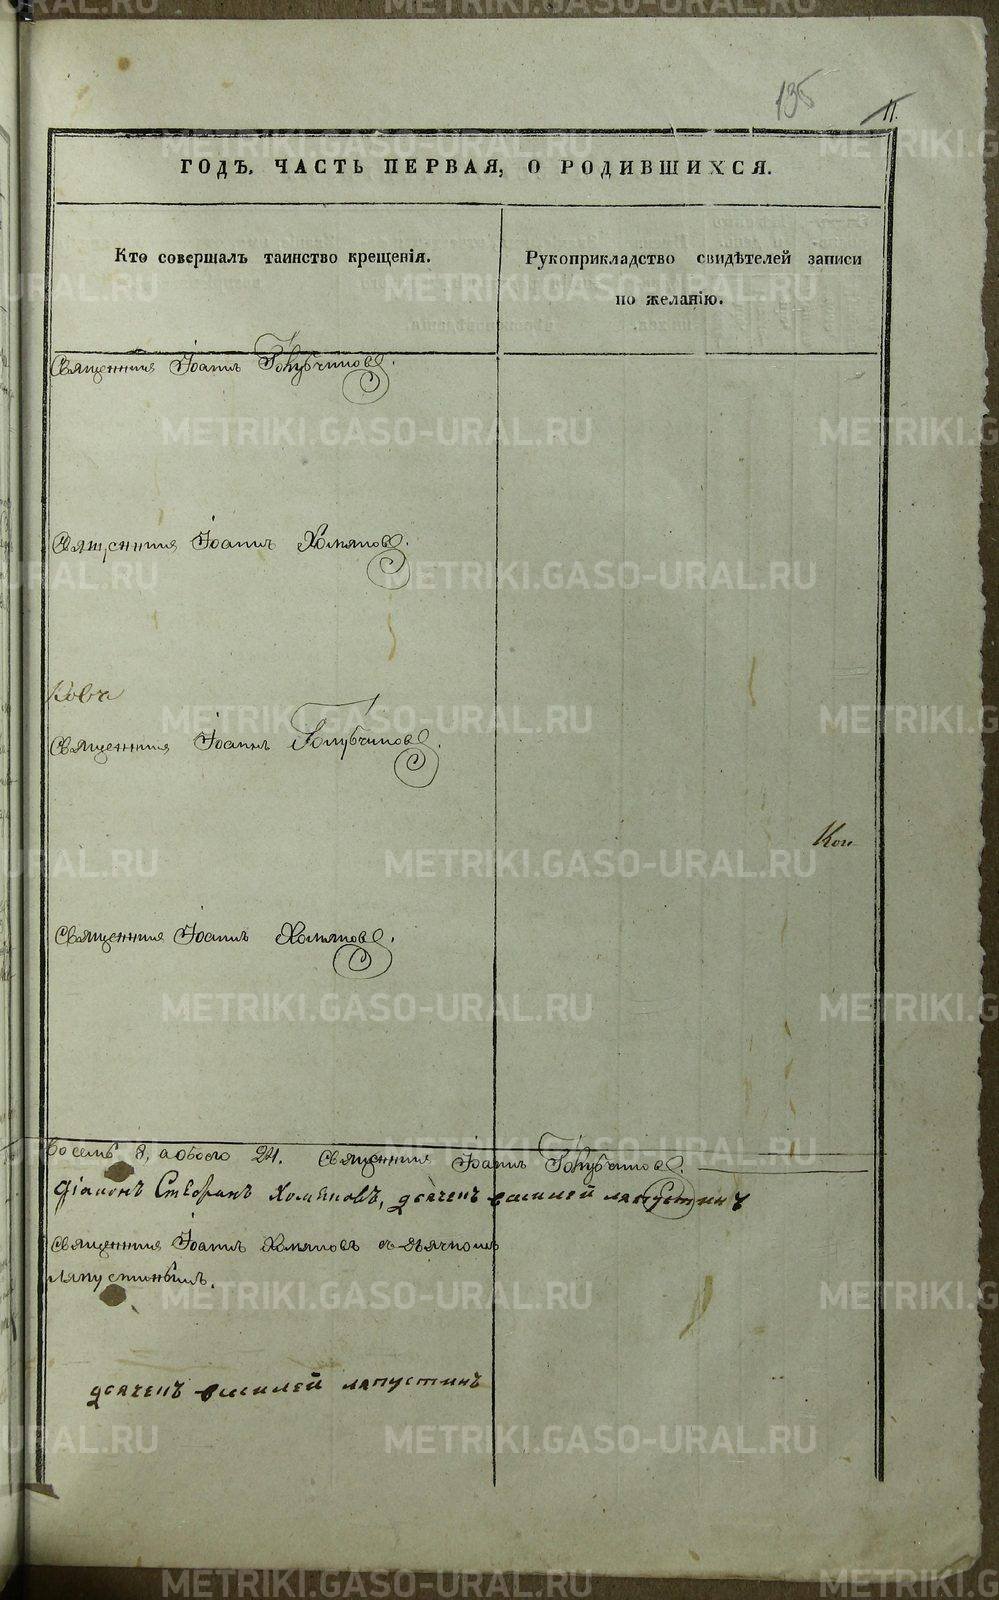 135
11.
ГОДЪ. ЧАСТЬ ПЕРВАЯ, О РОДИВШИХСЯ.
Кто совершалъ таинство крещенія.
Рукоприкладство свидѣтелей записи
по желанію.
Священник Іоанн Голубчиковъ.
Священник Іоанн Хомяковъ.
Священник Іоанн Голубчиковъ.
Кон
Священник Іоанн Хомяковъ.
восемь 8, а обоего 24. Священник Іоанн Голубчиковъ.
діаконъ Стефанъ Хомяковъ, дьячекъ василей ляпустинъ
Священник Іоанн Хомяковъ съ дьячкомъ
Ляпустинымъ.
дьячекъ василей ляпустинъ
METRIKI.GASO-URAL.RU